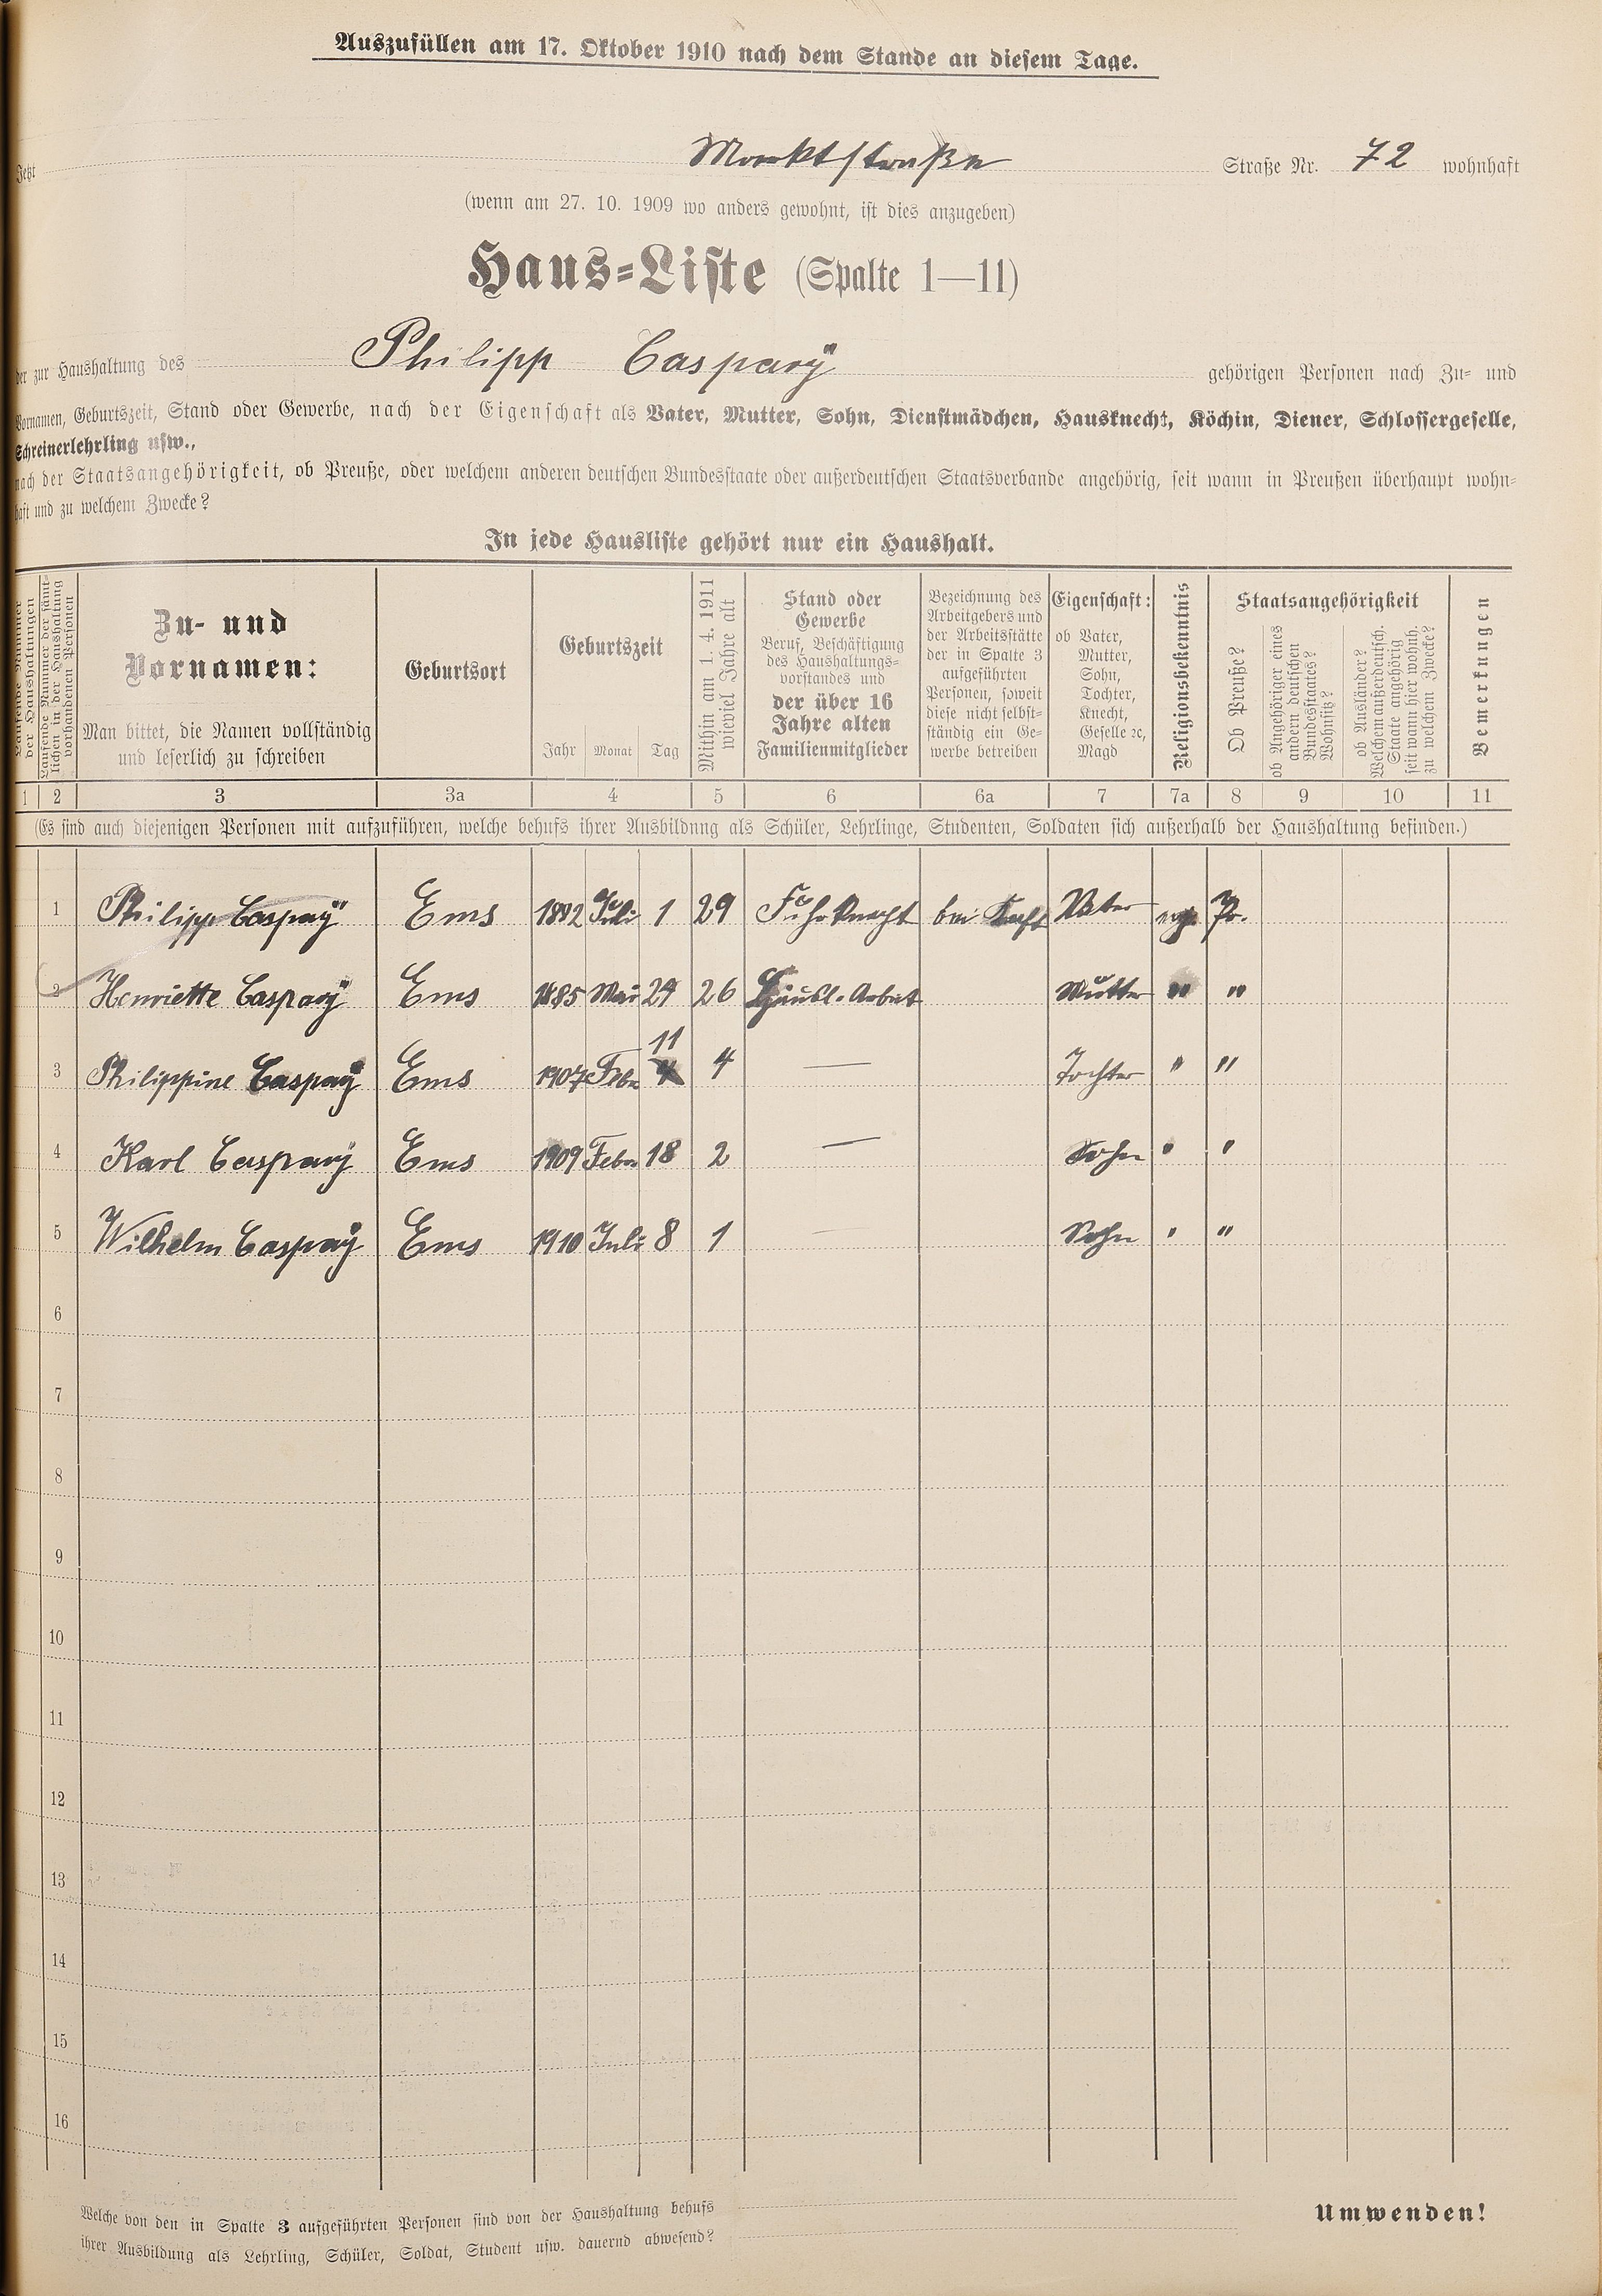 Auszufüllen am 17. Oktober 1910 nach dem Stande an diesem Tage.
Jetzt Marktstraße Straße Nr. 72 wohnhaft
(wenn am 27. 10. 1909 wo anders gewohnt, ist dies anzugeben)
Haus-Liste (Spalte 1—11)
der zur Haushaltung des Philipp Caspary gehörigen Personen nach Zu- und
Vornamen, Geburtszeit, Stand oder Gewerbe, nach der Eigenschaft als Vater, Mutter, Sohn, Dienstmädchen, Hausknecht, Köchin, Diener, Schlossergeselle,
Schreinerlehrling usw.,
nach der Staatsangehörigkeit, ob Preuße, oder welchem anderen deutschen Bundesstaate oder außerdeutschen Staatsverbande angehörig, seit wann in Preußen überhaupt wohn-
haft und zu welchem Zwecke?
In jede Hausliste gehört nur ein Haushalt.
Laufende Nummer der Haushaltungen
Laufende Nummer der sämt-
lichen in der Haushaltung
vorhandenen Personen
Zu- und
Vornamen:
Man bittet, die Namen vollständig
und leserlich zu schreiben
Geburtsort
Geburtszeit
Jahr Monat Tag
Mithin am 1. 4. 1911
wieviel Jahre alt
Stand oder
Gewerbe
Beruf, Beschäftigung
des Haushaltungs-
vorstandes und
der über 16
Jahre alten
Familienmitglieder
Bezeichnung des
Arbeitgebers und
der Arbeitsstätte
der in Spalte 3
aufgeführten
Personen, soweit
diese nicht selbst-
ständig ein Ge-
werbe betreiben
Eigenschaft:
ob Vater,
Mutter,
Sohn,
Tochter,
Knecht,
Geselle ꝛc,
Magd
Religionsbekenntnis
Staatsangehörigkeit
Ob Preuße?
ob Angehöriger eines
andern deutschen
Bundesstaates?
Wohnsitz?
ob Ausländer?
Welchem außerdeutsch.
Staate angehörig
seit wann hier wohnh.
zu welchem Zwecke?
Bemerkungen
1 2 3 3a 4 5 6 6a 7 7a 8 9 10 11
(Es sind auch diejenigen Personen mit aufzuführen, welche behufs ihrer Ausbildung als Schüler, Lehrlinge, Studenten, Soldaten sich außerhalb der Haushaltung befinden.)
1 Philipp Caspary Ems Juli 1 29 Fuhrknecht bei Vater evg. Pr.
2 Henriette Caspary Ems 1885 Mai 29 26 Häusl. Arbeit Mutter " "
3 Philippine Caspary Ems 1907 Febr 11 4 — Tochter " "
4 Karl Caspary Ems 1909 Febr 18 2 — Sohn " "
5 Wilhelm Caspary Ems 1910 Juli 8 1 — Sohn " "
6
7
8
9
10
11
12
13
14
15
16
Welche von den in Spalte 3 aufgeführten Personen sind von der Haushaltung behufs
ihrer Ausbildung als Lehrling, Schüler, Soldat, Student usw. dauernd abwesend?
Umwenden!